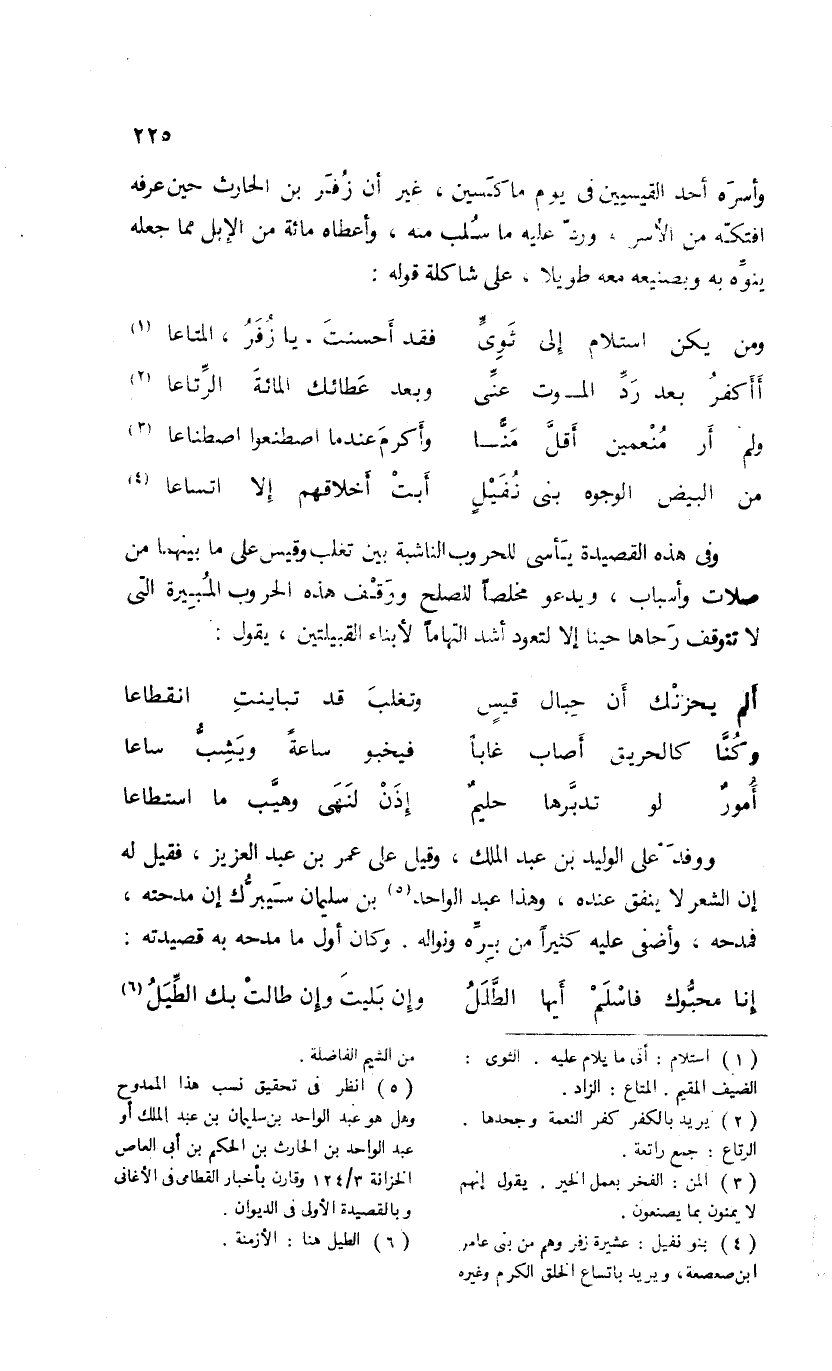 ٢٢٥
وأسرَه أحد القيسيين فى يوم ماكسين ، غير أن زُفَر بن الحارث حين عرفه
افتكَّه من الأسر ، وردّ عليه ما سُلب منه ، وأعطاه مائة من الإبل مما جعله
ينوِّه به وبصنيعه معه طويلا ، على شاكلة قوله :
ومن يكن استلام إلى ثَوِىٍّ فقد أحسنتَ . يا زُفَرُ ، المتاعا (١)
أأكفرُ بعد رَدِّ المــوت عنِّى وبعد عَطائك المائةَ الرِّتاعا (٢)
ولم أر مُنْعمين أقلَّ مَنًّــا وأكرمَ عندما اصطنعوا اصطناعا (٣)
من البيض الوجوه بنى نُفَيْلٍ أبتْ أخلاقهم إلا اتساعا (٤)
وفى هذه القصيدة يتأسى للحروب الناشبة بين تغلب وقيس على ما بينهما من
صلات وأسباب ، ويدعو مخلصاً للصلح ووَقْف هذه الحروب المُبيرة التى
لا تتوقف رَحاها حينا إلا لتعود أشد التهاماً لأبناء القبيلتين ، يقول :
ألم يحزنْك أن حِبال قيسٍ وتغلبَ قد تباينتِ انقطاعا
وكُنَّا كالحريق أصاب غاباً فيخبو ساعةً ويَشِبُّ ساعا
أُمورٌ لو تدبَّرها حليمٌ إذَنْ لنَهَى وهيَّب ما استطاعا
ووفدَ على الوليد بن عبد الملك ، وقيل على عمر بن عبد العزيز ، فقيل له
إن الشعر لا ينفق عنده ، وهذا عبد الواحد(٥) بن سليمان سَيبرُّك إن مدحته ،
فمدحه ، وأضفى عليه كثيراً من بِرِّه ونواله . وكان أول ما مدحه به قصيدته :
إنا محيُّوك فاسْلَمْ أيها الطَّلَلُ وإن بَليتَ وإن طالتْ بك الطِّيَلُ(٦)
(١) استلام : أتى ما يلام عليه . الثوى :
الضيف المقيم . المتاع : الزاد.
(٢) يريد بالكفر كفر النعمة وجحدها .
الرتاع : جمع راتعة .
(٣) المن : الفخر بعمل الخير . يقول إنهم
لا يمنون بما يصنعون .
(٤) بنو نفيل : عشيرة زفر وهم من بنى عامر
ابن صعصعة، ويريد باتساع الخلق الكرم وغيره
من الشيم الفاضلة .
(٥) انظر فى تحقيق نسب هذا الممدوح
وهل هو عبد الواحد بن سليمان بن عبد الملك أو
عبد الواحد بن الحارث بن الحكم بن أبى العاص
الخزانة ١٢٤/٣ وقارن بأخبار القطامى فى الأغانى
وبالقصيدة الأولى فى الديوان .
(٦) الطيل هنا : الأزمنة .